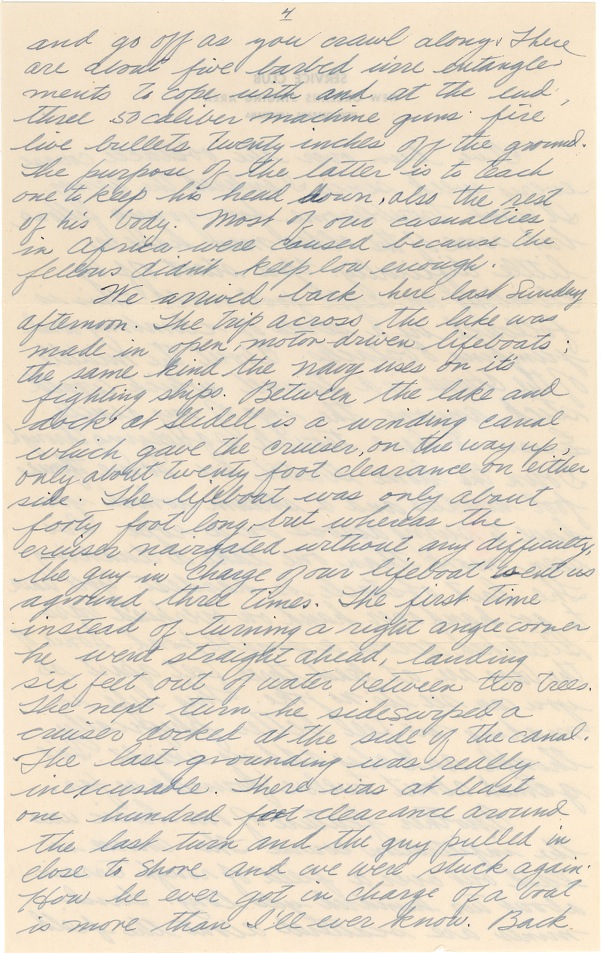 4
and go off as you crawl along. There
are about five barbed wire entangle-
ments to cope with and at the end,
three 50 caliber machine guns fire
live bullets twenty inches off the ground.
The purpose of the latter is to teach
one to keep his head down, also the rest
of his body. Most of our casualties
in Africa were caused because the
fellows didn't keep low enough.
We arrived back here last Sunday
afternoon. The trip across the lake was
made in open, motor driven lifeboats;
the same kind the navy uses on its
fighting ships. Between the lake and
dock at Slidell is a winding canal
which gave the cruiser, on the way up,
only about twenty foot clearance on either
side. The lifeboat was only about
forty foot long, but whereas the
cruiser navigated without any difficulty,
the guy in charge of our lifeboat sent us
aground three times. The first time
instead of turning a right angle corner
he went straight ahead, landing
six feet out of water between two trees.
The next turn he sideswiped a
cruiser docked at the side of the canal.
The last grounding was really
inexcusable. There was at least
one hundred foot clearance around
the last turn and the guy pulled in
close to shore and we were stuck again.
How he ever got in charge of a boat
is more than I'll ever know. Back